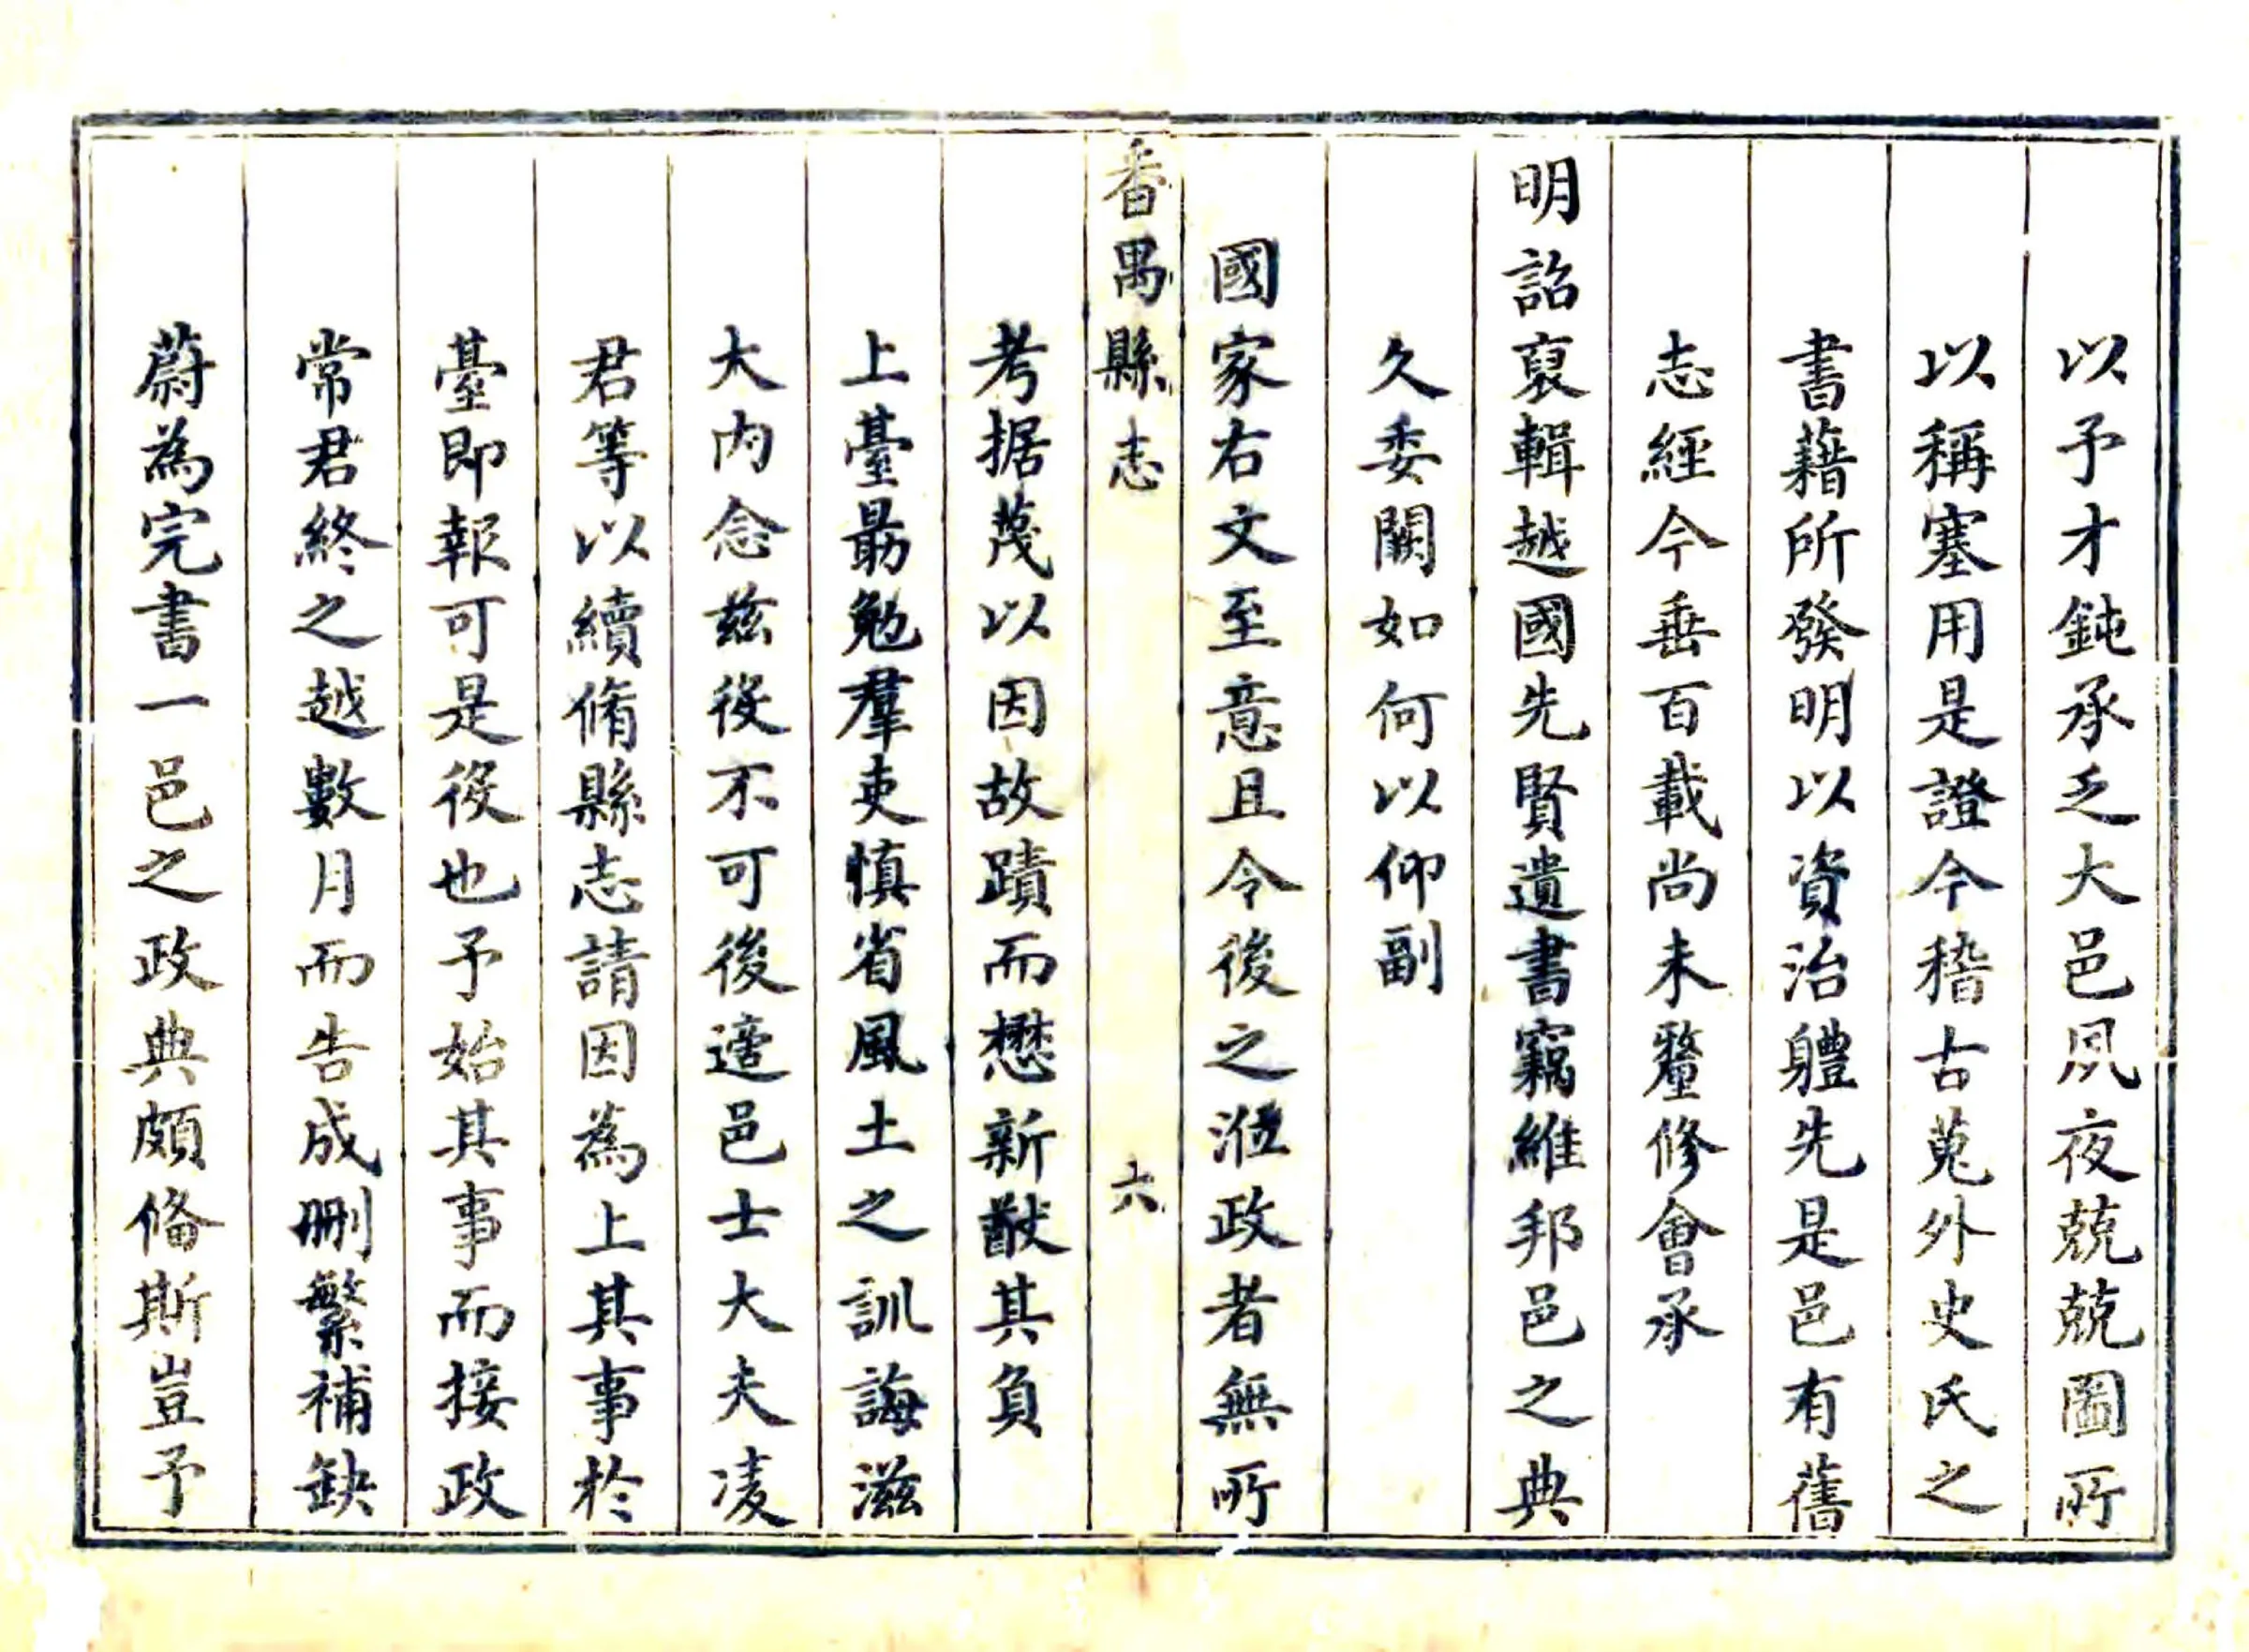 以予才鈍承乏大邑夙夜兢兢圖所
以稱塞用是證今稽古蒐外史氏之
書藉所發明以資治軆先是邑有舊
志經今垂百載尚未釐修會承
明詔裒輯越國先賢遺書竊維邦邑之典
久委闕如何以仰副
國家右文至意且令後之涖政者無所
番禺縣志 六
考据蔑以因故蹟而懋新猷其負
上臺勗勉羣吏慎省風土之訓誨滋
大內念茲役不可後適邑士大夫凌
君等以續脩縣志請因為上其事於
臺即報可是役也予始其事而接政
常君終之越數月而告成刪繁補缺
蔚為完書一邑之政典頗偹斯豈予